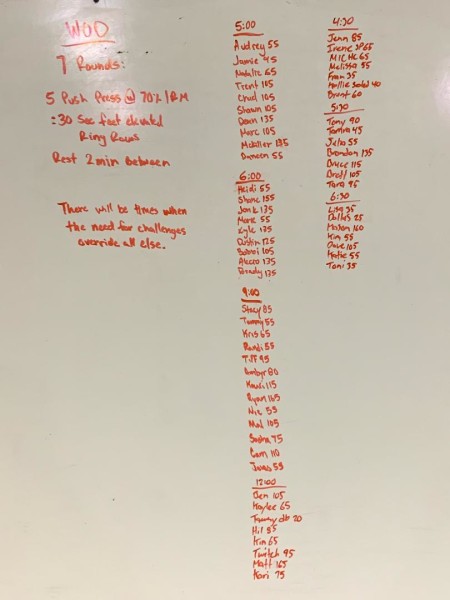 WOD
7 Rounds:
5 Push Press @ 70% 1RM
:30 Sec feet elevated
Ring Rows
Rest 2 min between
There will be times when
the need for challenges
override all else.
5:00
Audrey 55
Jamie 45
Natalie 65
Trent 105
Chud 105
Shawn 105
Dean 135
Marc 105
McAller 135
Duncan 55
6:00
Heidi 55
Shane 155
Jon k 135
Mark 55
Kyle 135
Dustin 125
105
135
Brady 135
9:00
Stacy 85
Tammy 55
Kris 65
Randi 55
Tiff 95
Ambyr 80
115
Ryan 165
Nic 55
Mal 105
Sasha 75
Cam 110
55
12:00
Ben 105
Kaylee 65
Tammy db 20
Hil 55
Kim 65
Twitch 95
Matt 165
Kari 75
4:30
Jenn 85
Irene SP 65
65
Melissa 55
Fran 35
Hollie 40
Brent 60
5:30
Tony 90
Tamra 45
Julia 55
Brandon 135
Bryce 115
Brett 105
Tara 95
6:30
Lisa 35
Dallas 85
Mason 160
Kim 55
Dave 105
Katie 55
Toni 35